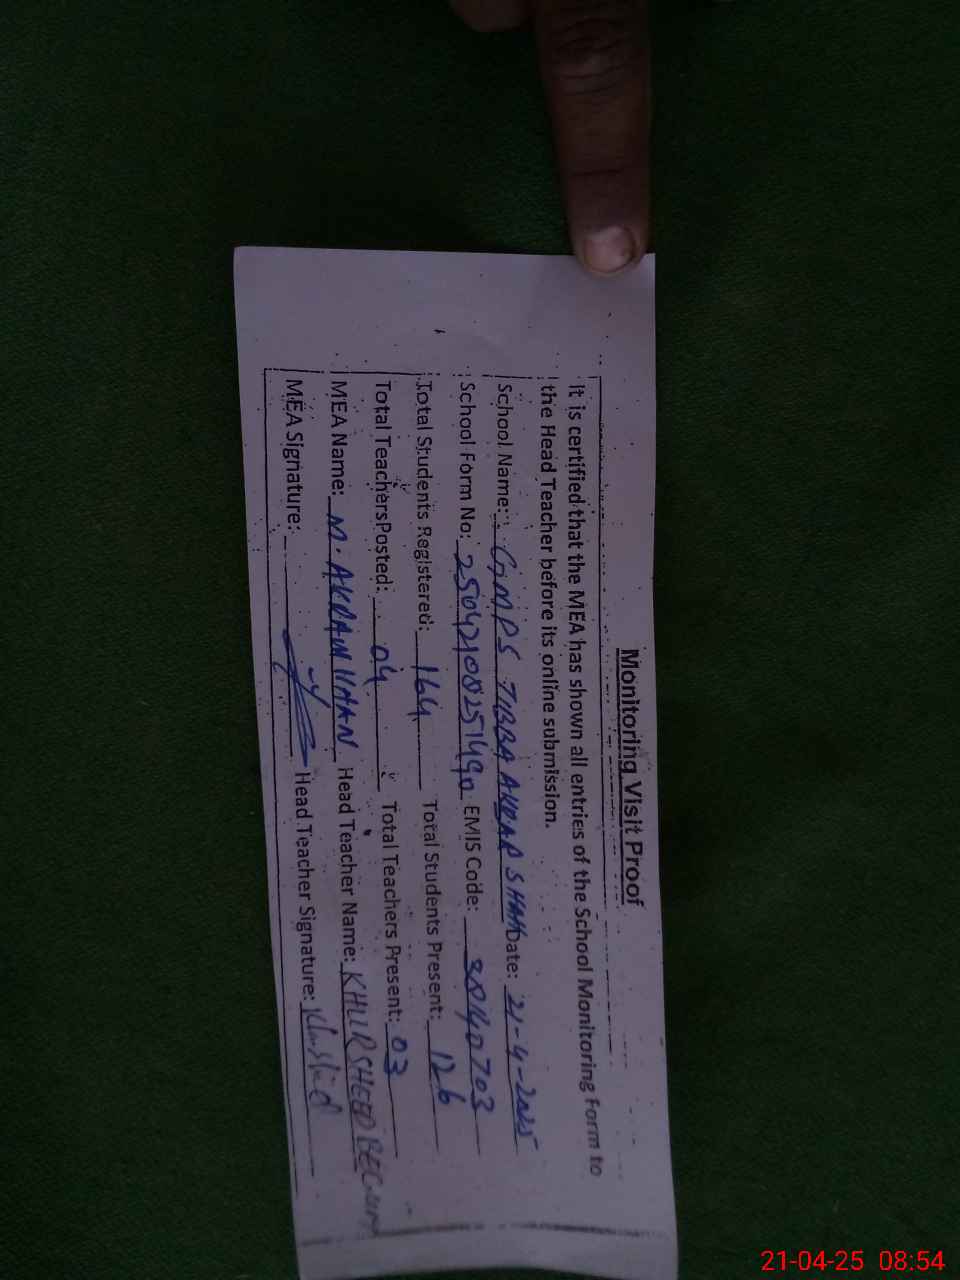 Monitoring Visit Proof
It is certified that the MEA has shown all entries of the School Monitoring Form to
the Head Teacher before its online submission.
School Name: GMPS TIBBA AKBAR SHAH Date: 21-4-2025
School Form No: 25042108251490 EMIS Code: 32140703
Total Students Registered: 164 Total Students Present: 126
Total Teachers Posted: 04 Total Teachers Present: 03
MEA Name: M. AKRAM KHAN Head Teacher Name: KHURSHEED BEGUM
MEA Signature: Head Teacher Signature: Khurshid
21-04-25 08:54